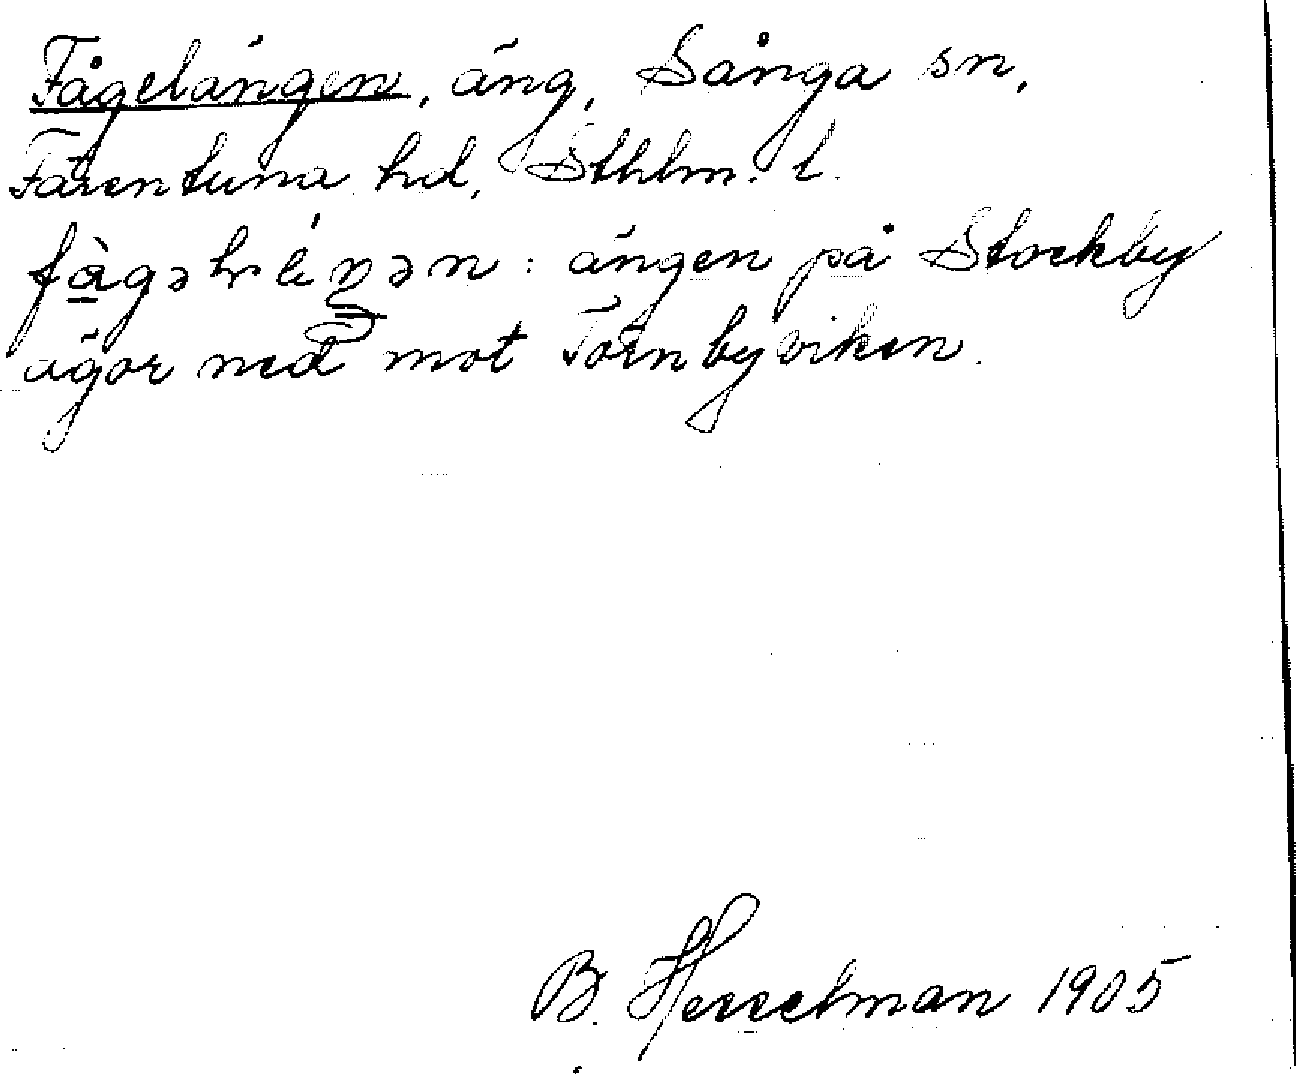 Fågelängen, äng, Sånga sn,
Färentuna hd, Sthlm. l.
ängen på Stockby
ägor ned mot Törnbyviken.
B. Hesselman 1905